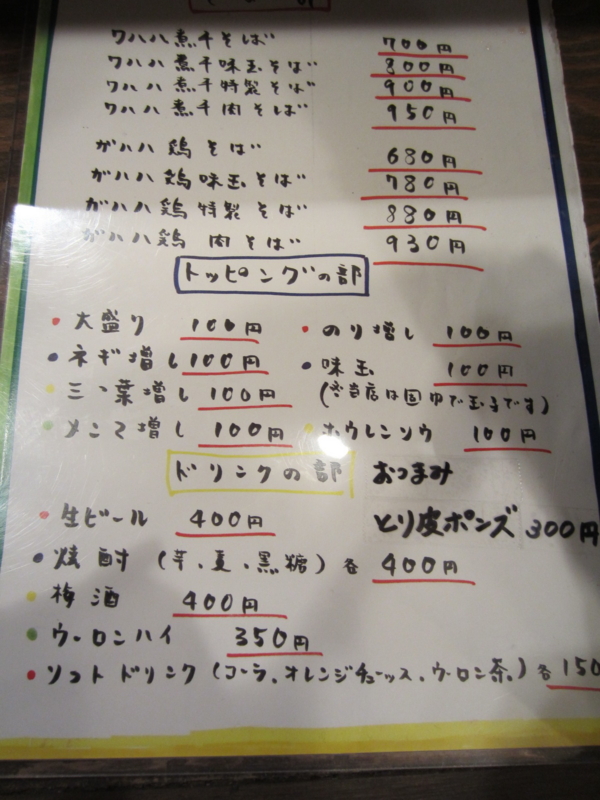 ワハハ煮干そば 700円
ワハハ煮干味玉そば 800円
ワハハ煮干特製そば 900円
ワハハ煮干肉そば 950円
ガハハ鶏そば 680円
ガハハ鶏味玉そば 780円
ガハハ鶏特製そば 880円
ガハハ鶏肉そば 930円
トッピングの部
大盛り 100円 のり増し 100円
ネギ増し 100円 味玉 100円
三ッ葉増し 100円 (当店は固ゆで玉子です)
メンマ増し 100円 ホウレンソウ 100円
ドリンクの部 おつまみ
生ビール 400円 とり皮ポンズ 300円
焼酎(芋、麦、黒糖)各 400円
梅酒 400円
ウーロンハイ 350円
ソフトドリンク(コーラ、オレンジヂュース、ウーロン茶)各150